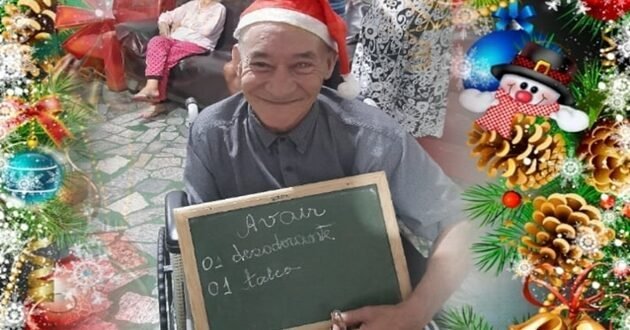 Avair
01 desodorante
01 talco